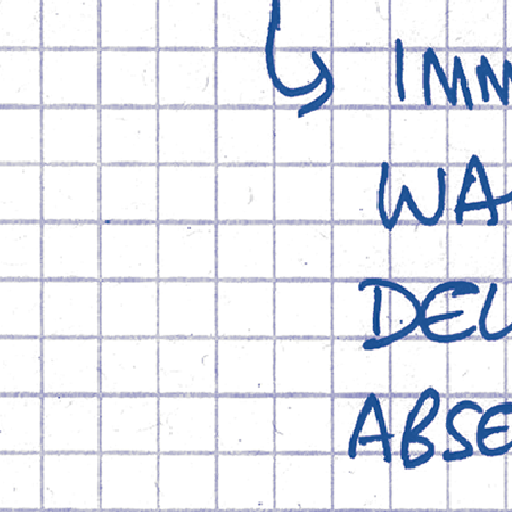 IMM
WA
DEL
ABSE